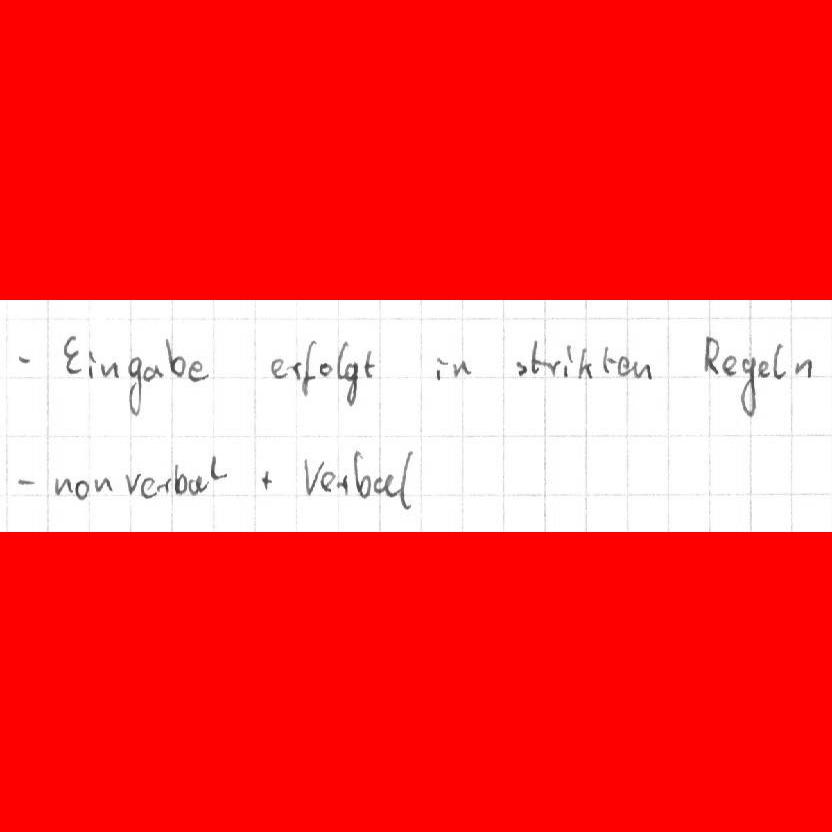 - Eingabe erfolgt in strikten Regeln
- nonverbal + Verbal